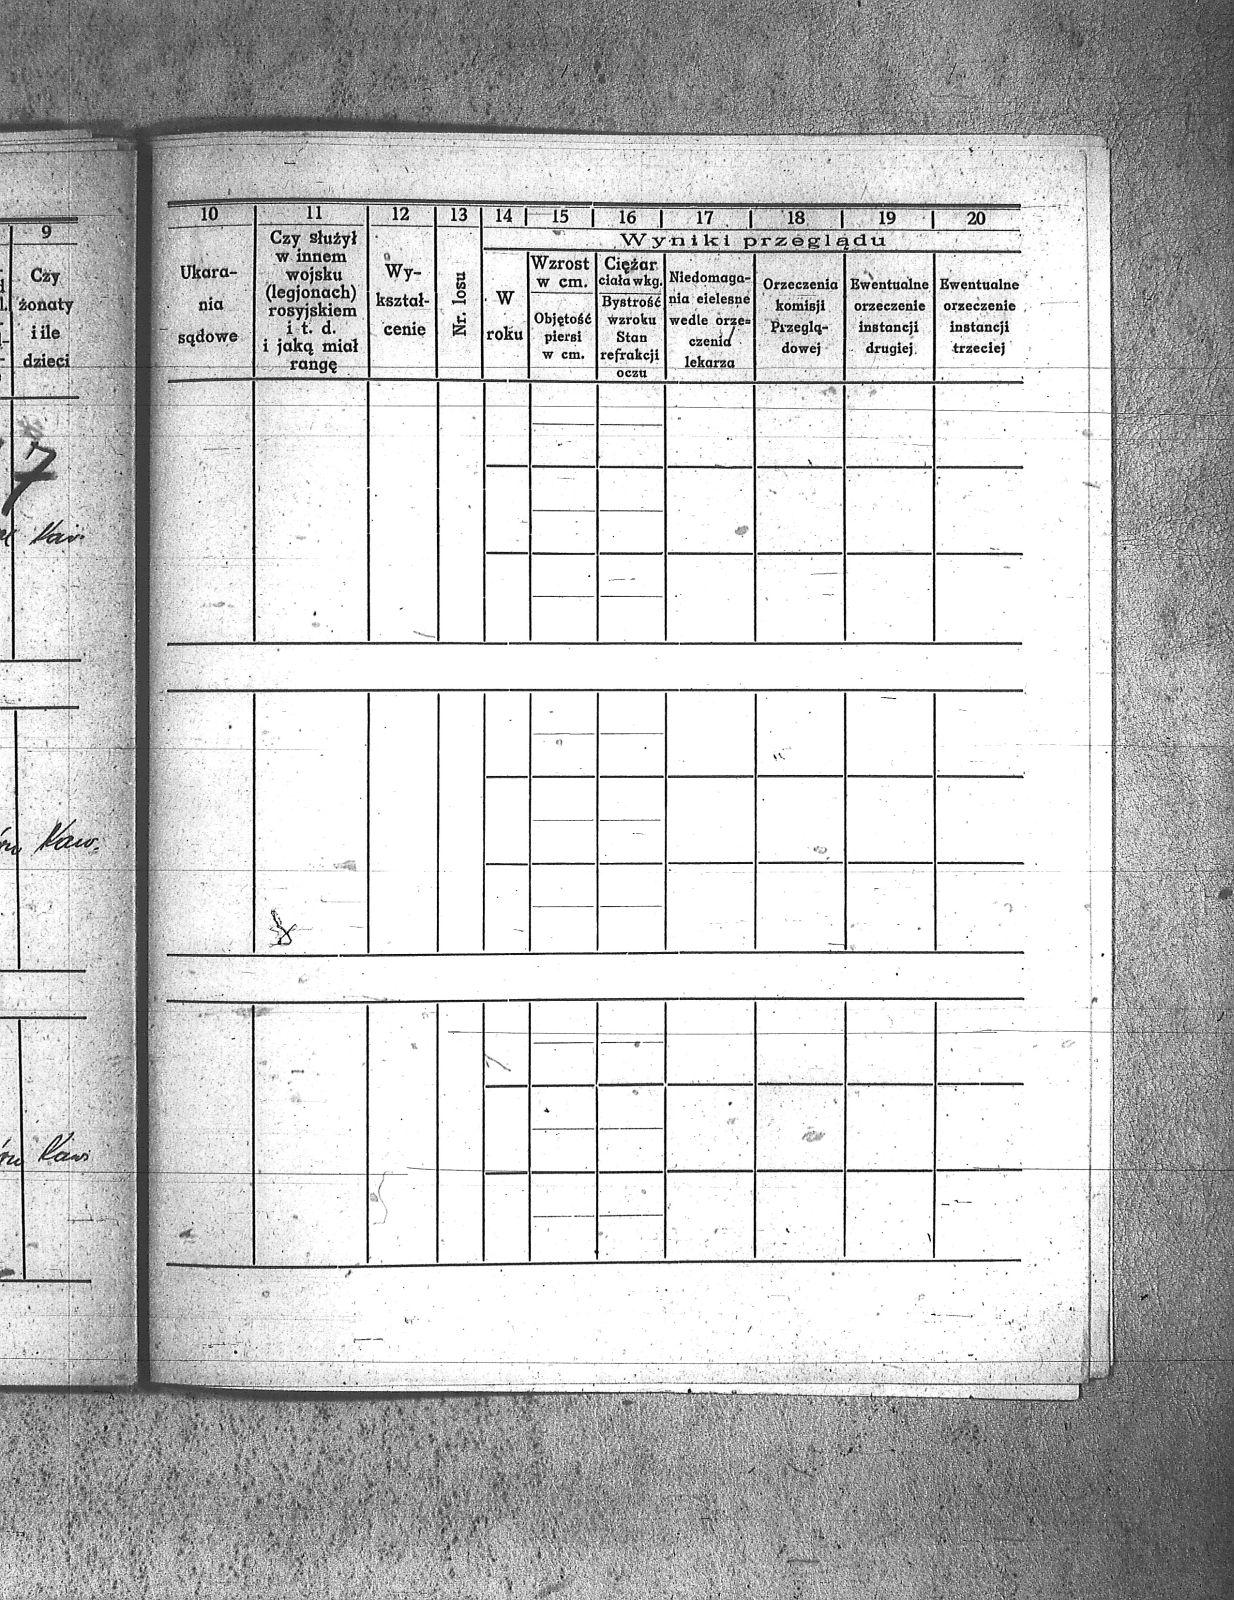 9
Czy
żonaty
i ile
dzieci
7
Kaw.
Kaw.
Kaw.
10 11 12 13 14 15 16 17 18 19 20
Wyniki przeglądu
Ukara-
nia
sądowe
Czy służył
w innem
wojsku
(legjonach)
rosyjskiem
i t. d.
i jaką miał
rangę
Wy-
kształ-
cenie
Nr. losu
W
roku
Wzrost
w cm.
Objętość
piersi
w cm.
Ciężar
ciała w kg.
Bystrość
wzroku
Stan
refrakcji
oczu
Niedomaga-
nia cielesne
wedle orze=
czenia
lekarza
Orzeczenia
komisji
Przeglą-
dowej
Ewentualne
orzeczenie
instancji
drugiej
Ewentualne
orzeczenie
instancji
trzeciej